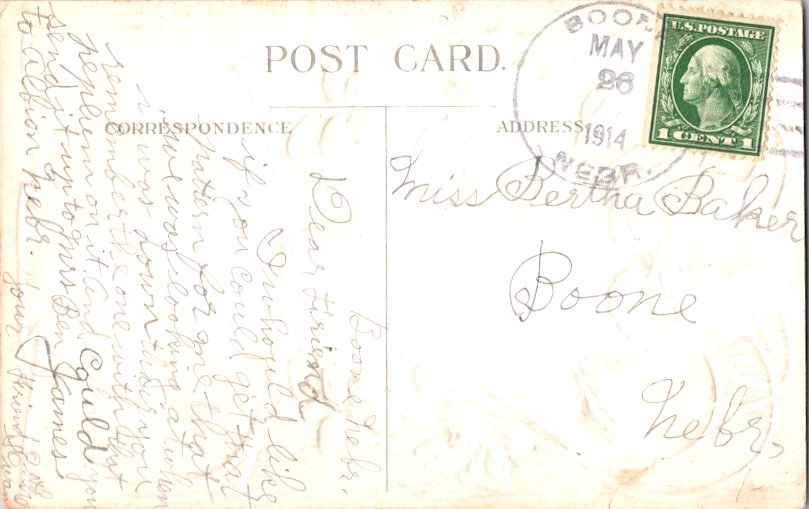 POST CARD.
CORRESPONDENCE
ADDRESS
BOON
MAY
26
1914
NEBR.
U.S. POSTAGE
1 CENT 1
Miss Bertha Baker
Boone
Nebr,
Boone Nebr.
Dear Friend
I whould like
if you could get that
pattern for me that
we was looking at when
i was down ther you
remember the one with that
peplum on it and Could you
send it up to Mrs Ben James
to Albion Nebr.
your Friend